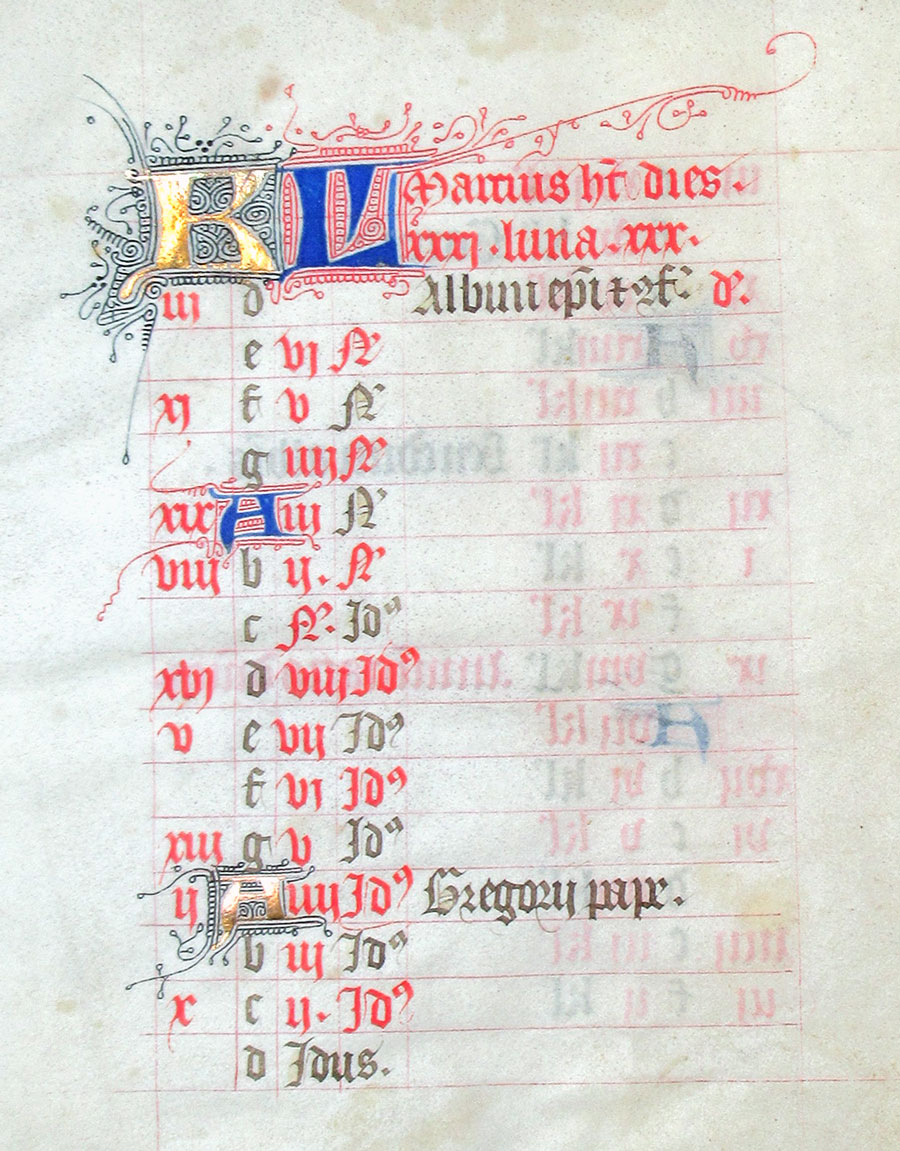 KL Martius ht̄ dies .
xxxj . luna . xxx .
iij d Albini ep̄i et 9f̄. d̾.
e vj N̾
xj f v N̾
g iiij N̾
xix A iij N̾
viij b ij . N̾
c N̾ . Idꝰ
xvj d viij Idꝰ
v e vij Idꝰ
f vj Idꝰ
xiij g v Idꝰ
ij A iiij Idꝰ Gregorij pape .
b iij Idꝰ
x c ij . Idꝰ
d Idus .